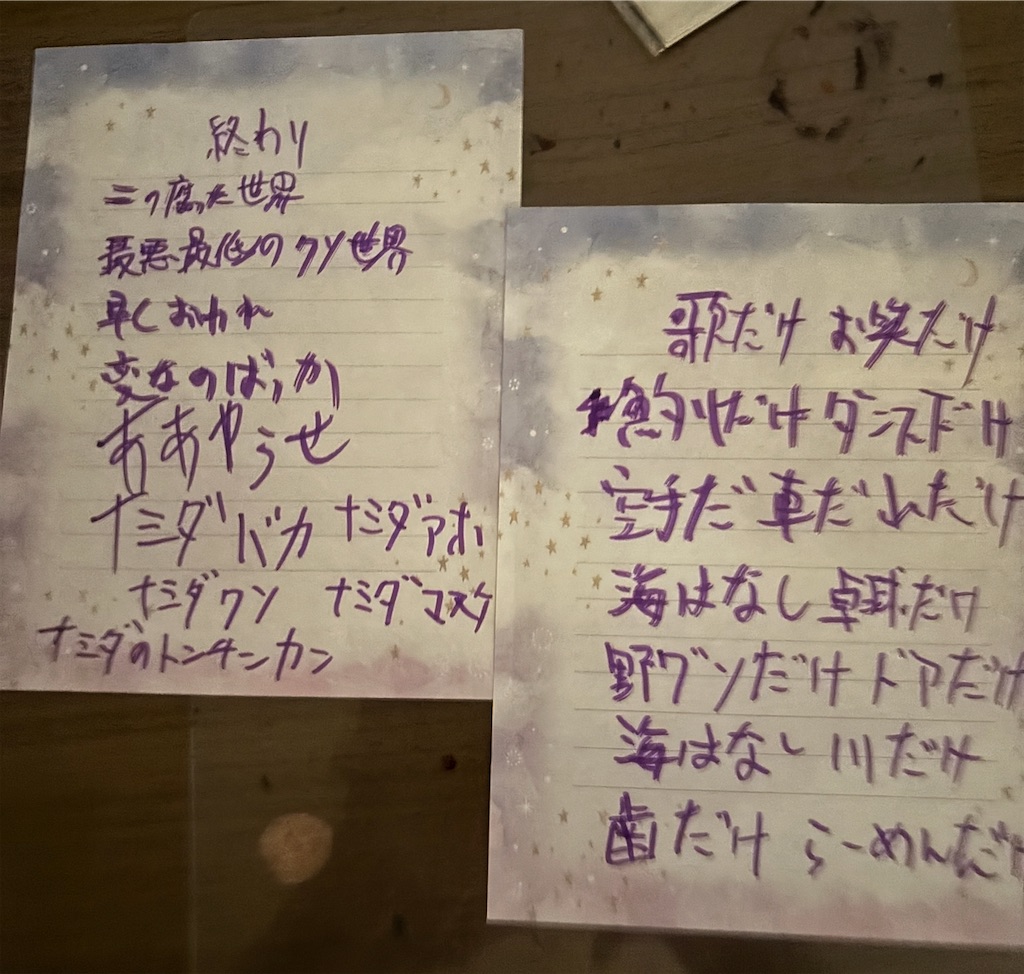 終わり
腐った世界
最悪最低のクソ世界
早くおわれ
変なのばっか
ああやらせ
ナミダバカ ナミダアホ
ナミダクソ ナミダマヌケ
ナミダのトンチンカン
歌だけ お笑だけ
だけ ダンスだけ
空手だ 車だ だけ
海はなし 卓球だけ
野グソだけ ドアだけ
海はなし 川だけ
歯だけ らーめんだけ